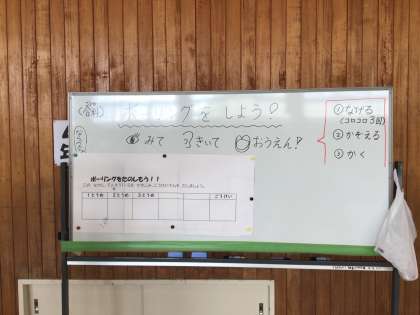 ボーリングをしよう!
みて きいて おうえん!
①なげる
(コロコロ3回)
②かぞえる
③かく
ボーリングをたのしもう!!
1とうめ 2とうめ 3とうめ ごうけい